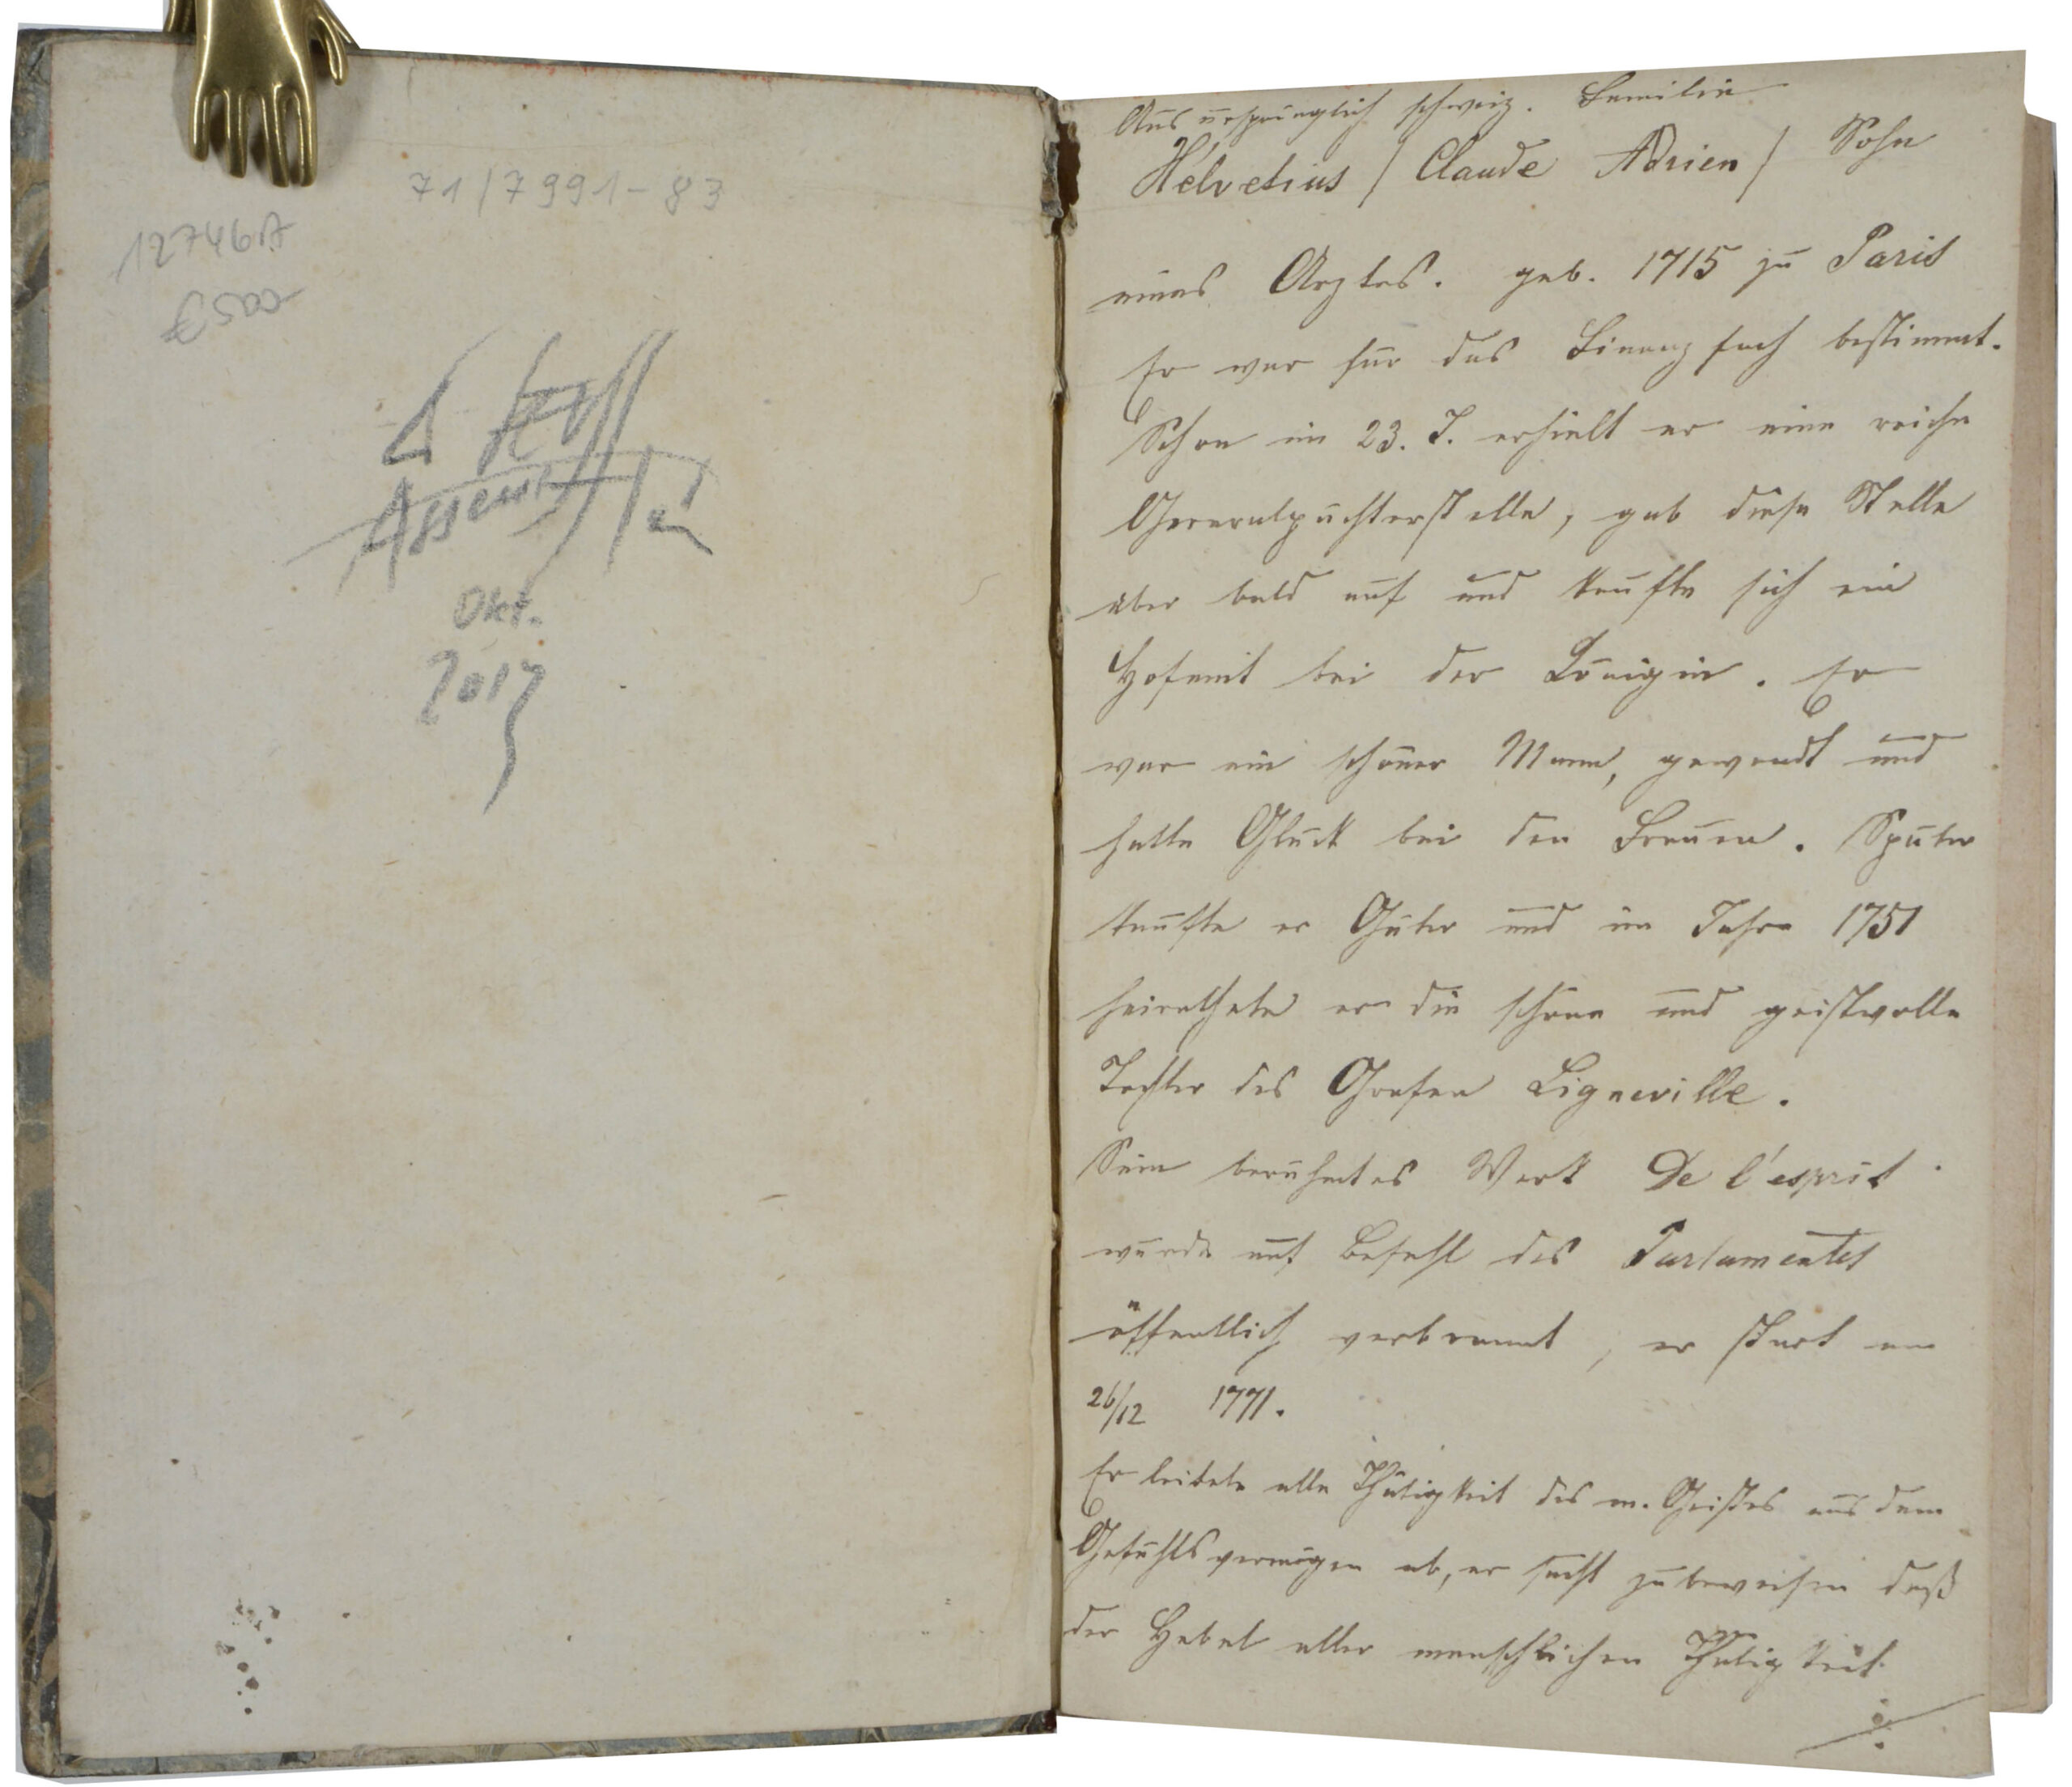 71/7991-83
12746A
Okt.
2017
Aus ursprünglich schweiz. Familie
Helvetius / Claude Adrien / Sohn
eines Arztes. geb. 1715 zu Paris
Er war für das Finanzfach bestimmt.
Schon im 23. J. erhielt er eine reiche
Generalpächterstelle, gab diese Stelle
aber bald auf und kaufte sich ein
Hofamt bei der Königin. Er
war ein schöner Mann, gewandt und
hatte Glück bei den Frauen. Später
kaufte er Güter und im Jahre 1751
heirathete er die schöne und geistvolle
Tochter des Grafen Ligneville.
Sein berühmtes Werk De l'esprit
wurde auf Befehl des Parlamentes
öffentlich verbrannt, er starb am
26/12 1771.
Er leitete alle Thätigkeit des m. Geistes aus dem
Gefühlsvermögen ab, er sucht zu beweisen daß
der Hebel aller menschlichen Thätigkeit